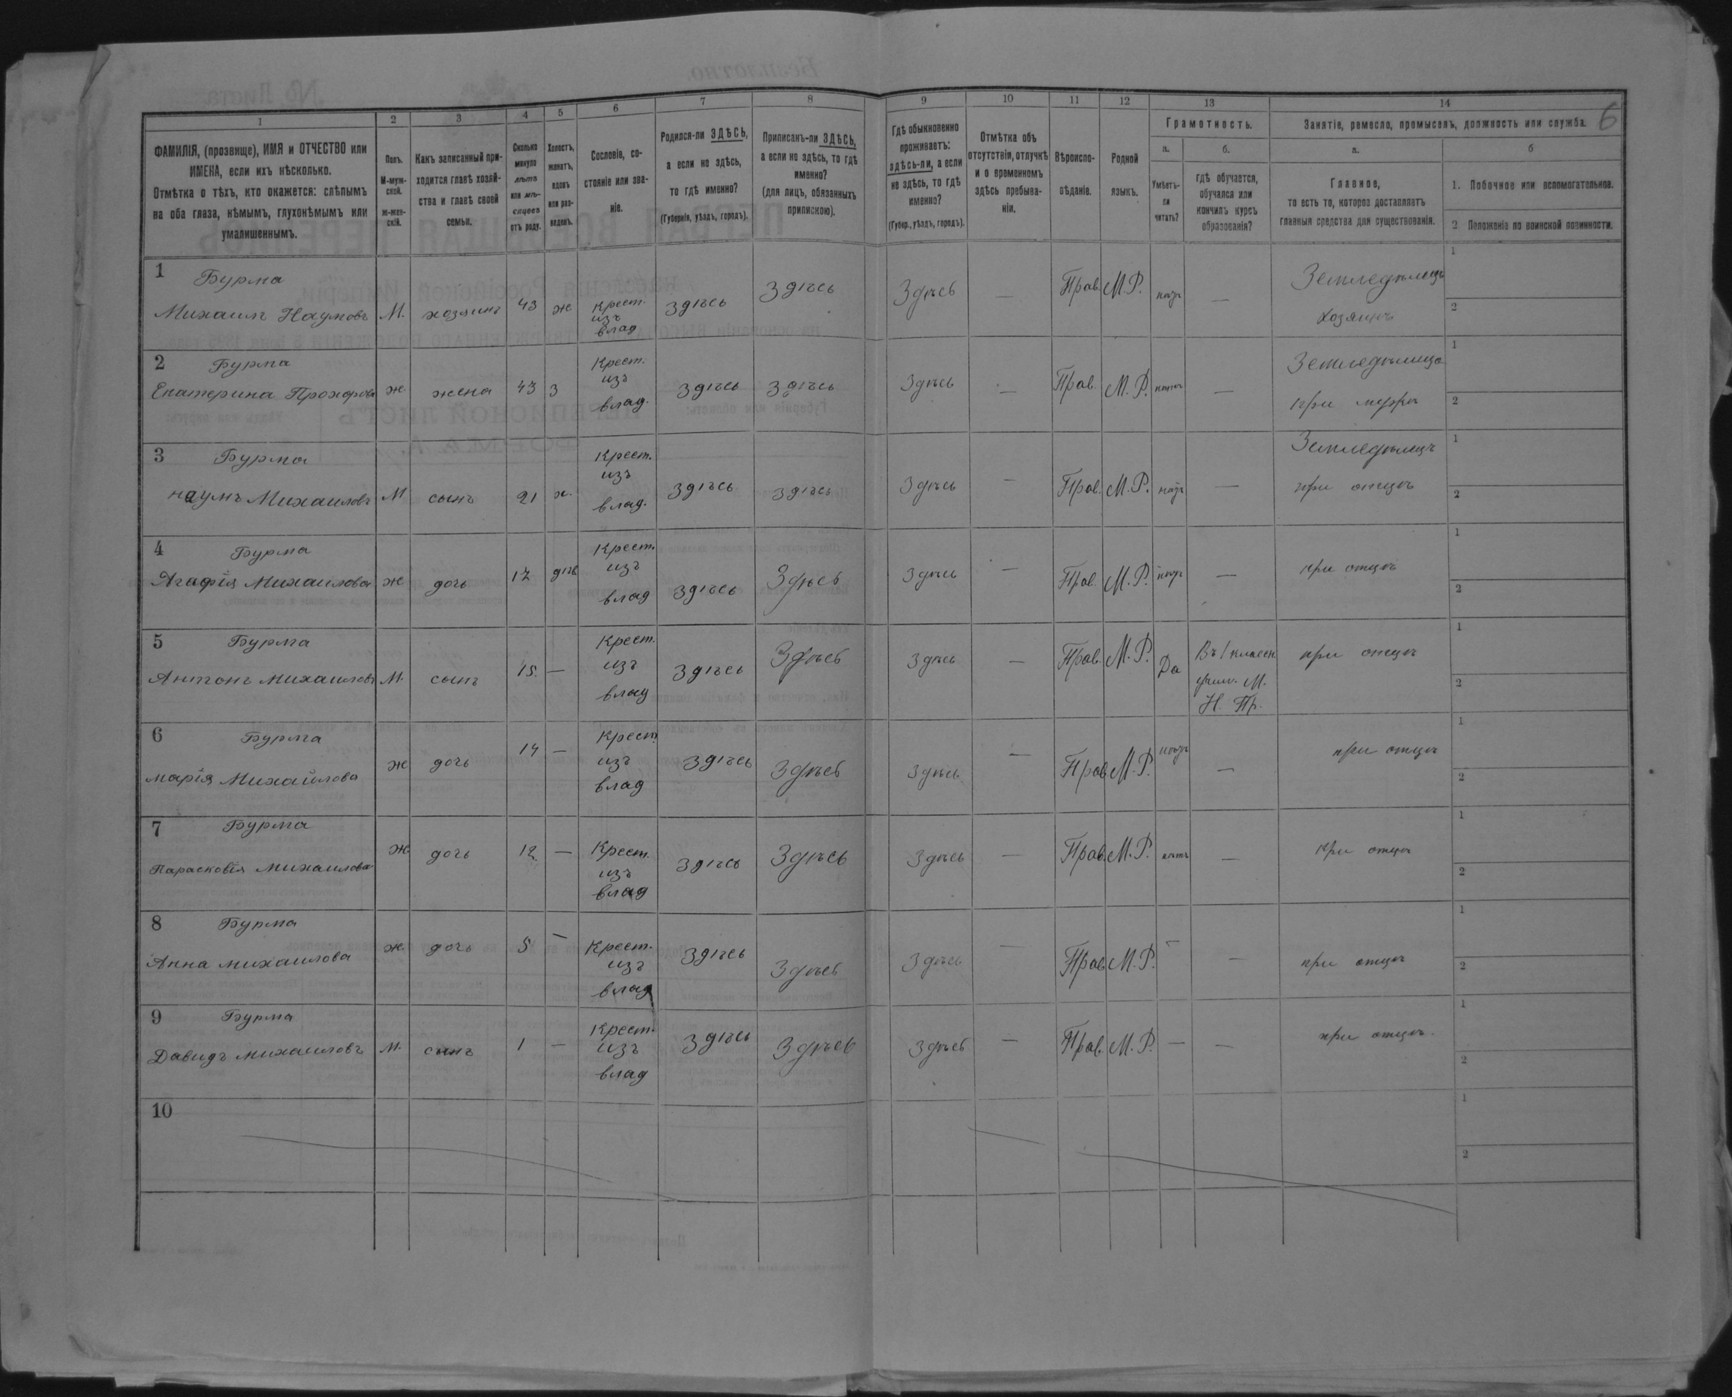 6
1 2 3 4 5 6 7 8 9 10 11 12 13 14
ФАМИЛІЯ, (прозвище), ИМЯ и ОТЧЕСТВО или
ИМЕНА, если ихъ нѣсколько.
Отмѣтка о тѣхъ, кто окажется: слѣпымъ
на оба глаза, нѣмымъ, глухонѣмымъ или
умалишеннымъ.
Полъ.
М-муж-
ской.
ж-жен-
скій.
Какъ записанный при-
ходится главѣ хозяй-
ства и главѣ своей
семьи.
Сколько
минуло
лѣтъ
или мѣ-
сяцевъ
отъ роду.
Холостъ,
женатъ,
вдовъ
или раз-
веденъ.
Сословіе, со-
стояніе или зва-
ніе.
Родился-ли ЗДѢСЬ,
а если не здѣсь,
то гдѣ именно?
(Губернія, уѣздъ, городъ).
Приписанъ-ли ЗДѢСЬ,
а если не здѣсь, то гдѣ
именно?
(для лицъ, обязанныхъ
припискою).
Гдѣ обыкновенно
проживаетъ:
здѣсь-ли, а если
не здѣсь, то гдѣ
именно?
(Губер., уѣздъ, городъ).
Отмѣтка объ
отсутствіи, отлучкѣ
и о временномъ
здѣсь пребыва-
ніи.
Вѣроиспо-
вѣданіе.
Родной
языкъ.
Грамотность.
а.
Умѣетъ-
ли
читать?
б.
гдѣ обучается,
обучался или
кончилъ курсъ
образованія?
Занятіе, ремесло, промыселъ, должность или служба.
а.
Главное,
то есть то, которое доставляетъ
главныя средства для существованія.
б
1. Побочное или вспомогательное.
2 Положеніе по воинской повинности.
1 Бурма
Михаилъ Наумовъ М. хозяинъ 43 ж Крест. изъ влад Здѣсь Здѣсь Здѣсь — Прав. М.Р. нѣтъ — Земледѣлецъ хозяинъ 1 2
2 Бурма
Екатерина Прохорова ж жена 43 з Крест. изъ влад. Здѣсь Здѣсь Здѣсь — Прав. М.Р. нѣтъ — Земледѣлица при мужѣ 1 2
3 Бурма
Наумъ Михаиловъ М сынъ 21 х Крест. изъ влад. Здѣсь Здѣсь Здѣсь — Прав. М.Р. нѣтъ — Земледѣлецъ при отцѣ 1 2
4 Бурма
Агафія Михаилова ж дочь 17 дѣв Крест. изъ влад Здѣсь Здѣсь Здѣсь — Прав. М.Р. нѣтъ — при отцѣ 1 2
5 Бурма
Антонъ Михаиловъ М. сынъ 15 — Крест. изъ влад Здѣсь Здѣсь Здѣсь — Прав. М.Р. Да Въ 1 класн училъ М. Н. Пр. при отцѣ 1 2
6 Бурма
Марія Михайлова ж дочь 14 — Крест. изъ влад Здѣсь Здѣсь Здѣсь — Прав М.Р. нѣтъ — при отцѣ 1 2
7 Бурма
Парасковія Михаилова ж дочь 12 — Крест. изъ влад Здѣсь Здѣсь Здѣсь — Прав. М.Р. нѣтъ — при отцѣ 1 2
8 Бурма
Анна Михаилова ж дочь 5 — Крест. изъ влад Здѣсь Здѣсь Здѣсь — Прав. М.Р. — — при отцѣ 1 2
9 Бурма
Давидъ Михаиловъ М. сынъ 1 — Крест. изъ влад Здѣсь Здѣсь Здѣсь — Прав. М.Р. — — при отцѣ 1 2
10 1 2